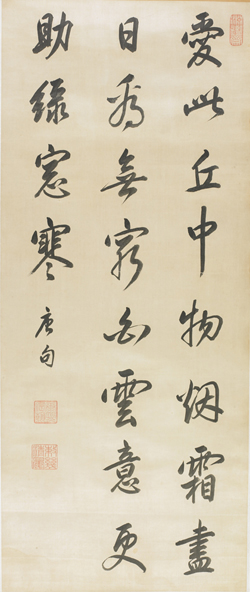 愛此丘中物烟霜盡
日看無窮白雲意更
助綠窓寒 唐句